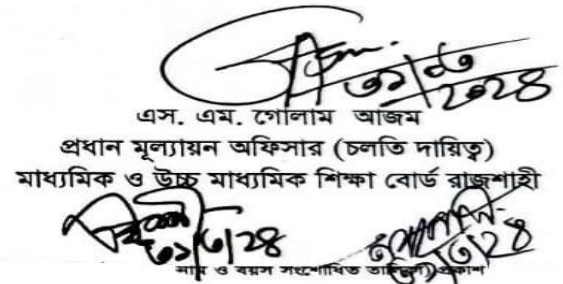 ৩১/৩
২০২৪
এস. এম. গোলাম আজম
প্রধান মূল্যায়ন অফিসার (চলতি দায়িত্ব)
মাধ্যমিক ও উচ্চ মাধ্যমিক শিক্ষা বোর্ড রাজশাহী
৩১/৩/২৪
৩১/৩/২৪
নাম ও বয়স সংশোধিত প্রকাশ